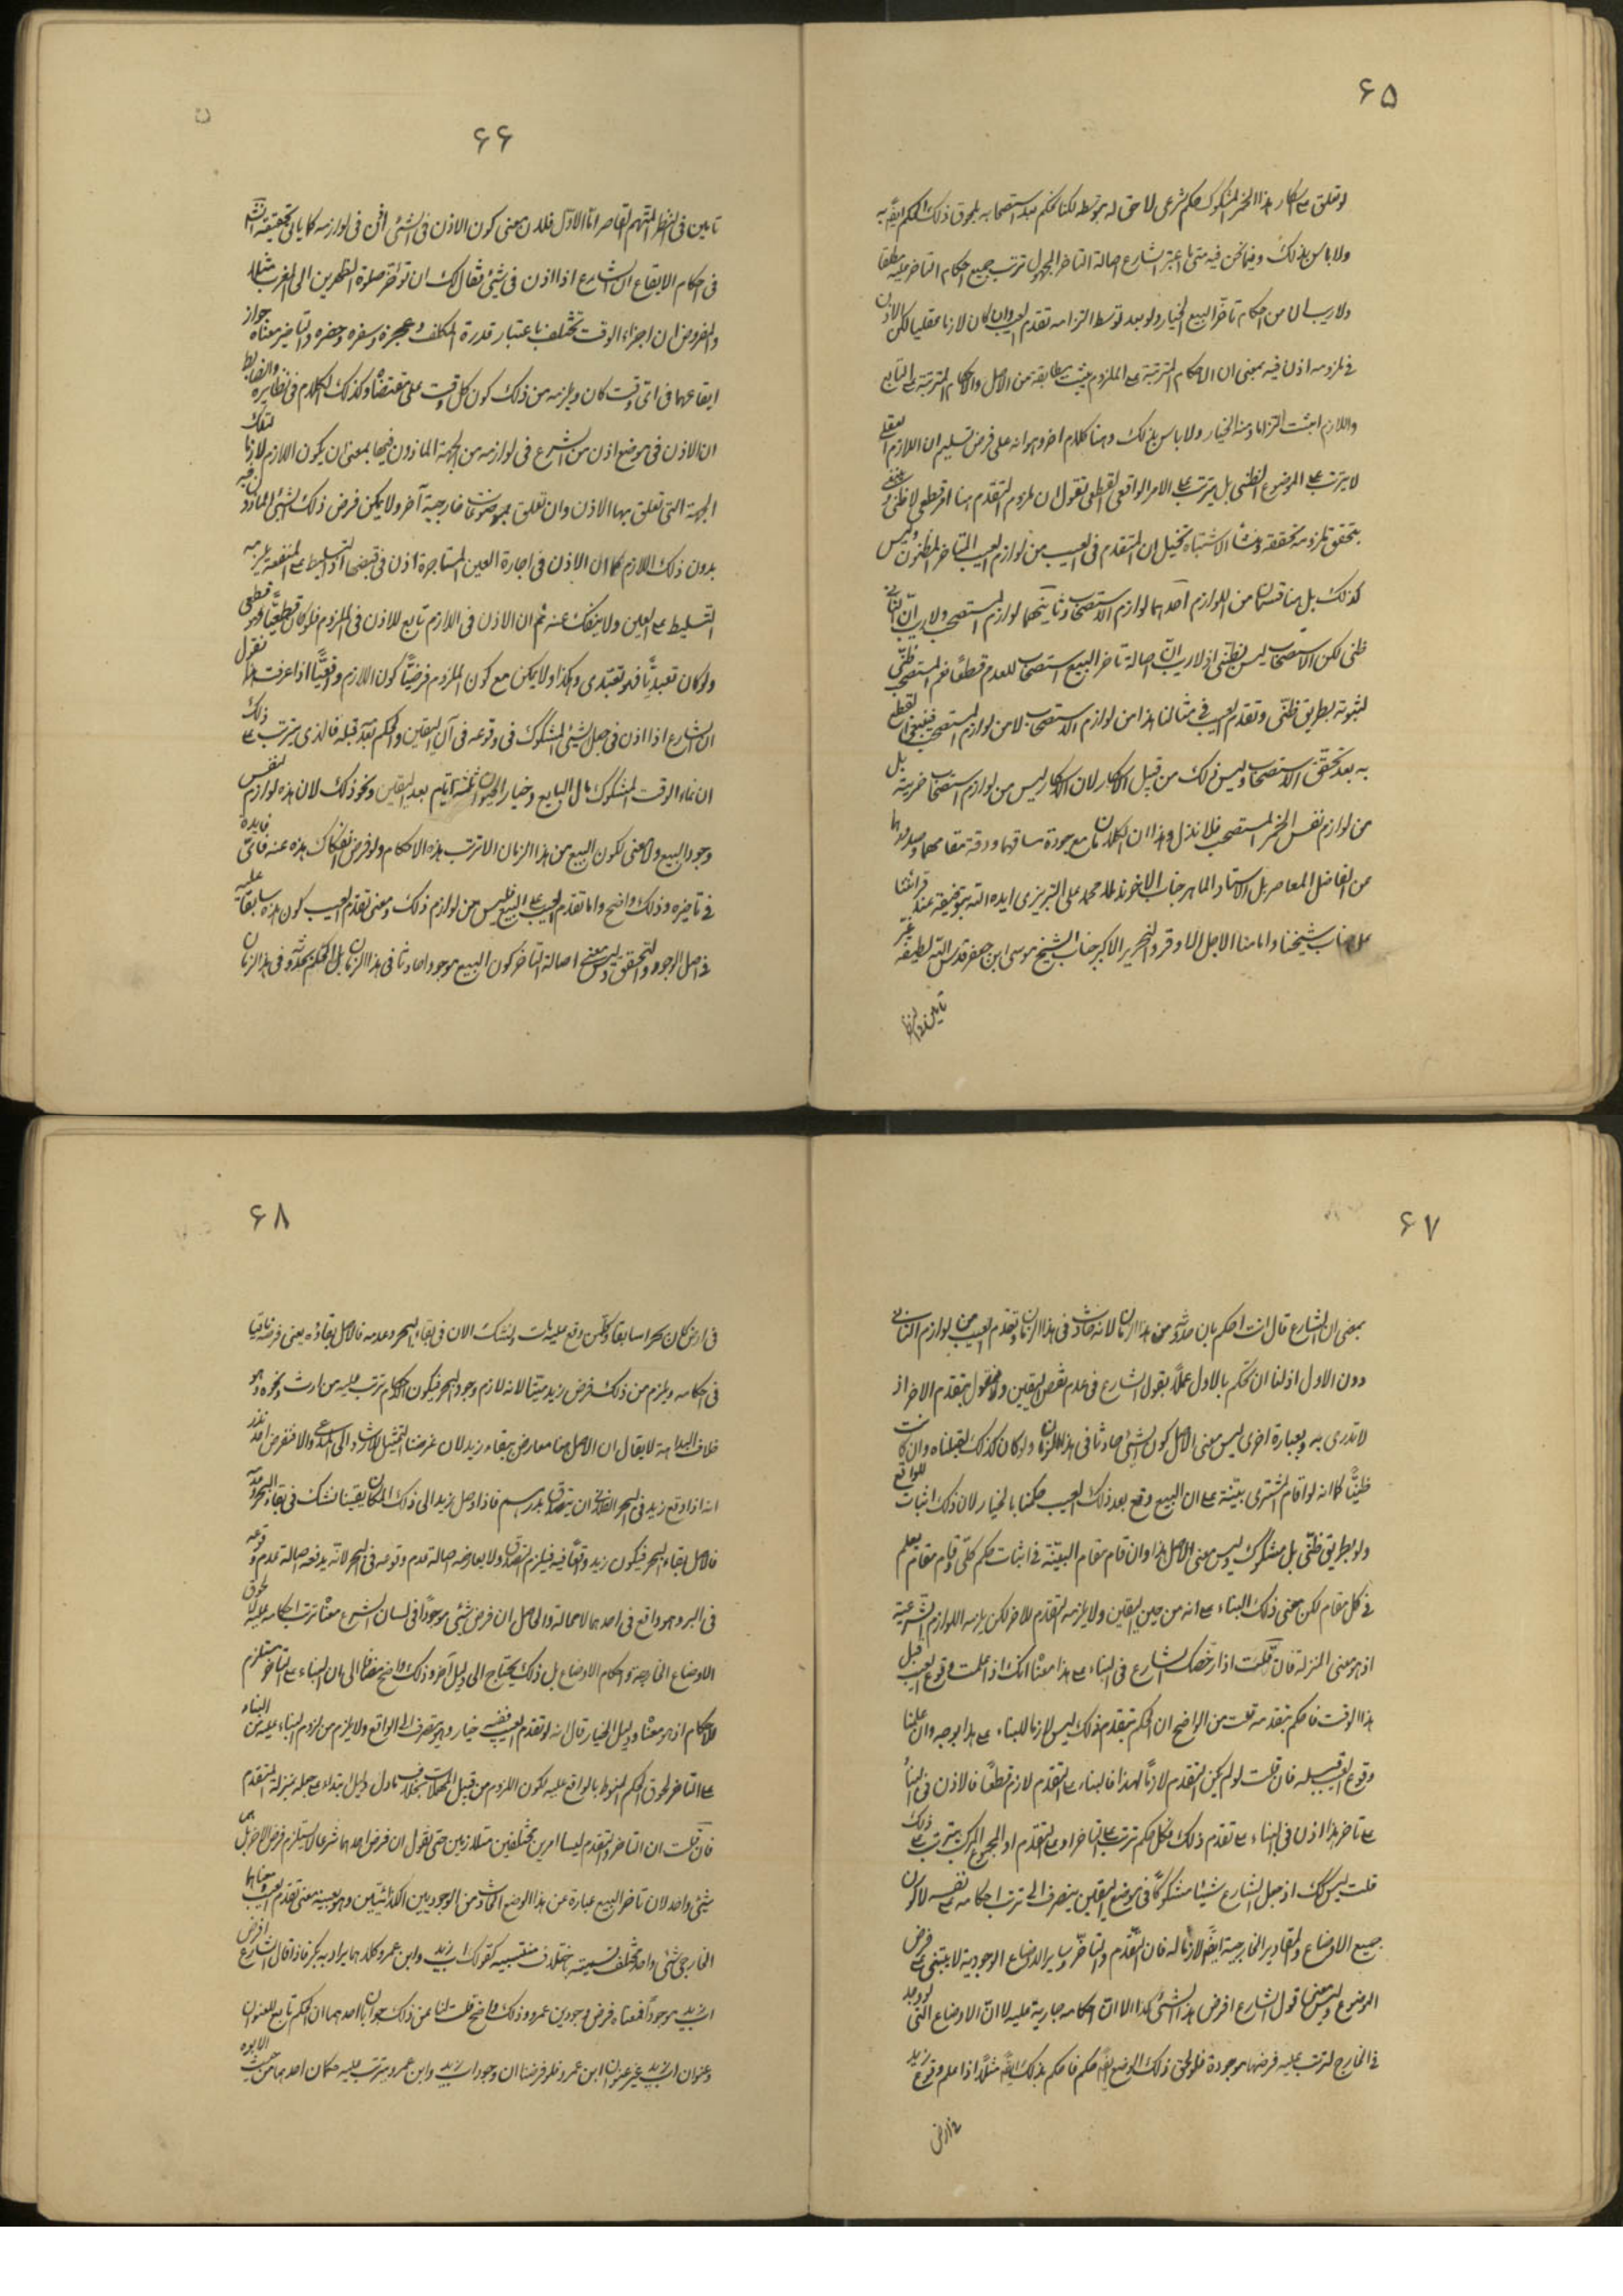 ۶۵
لو تعلق على اسكار هذا الخمر المشكوك حكم شرعى لاحق له بتوسطه لكنا نحكم بعد استصحابه بلحوق ذلك الحكم ايضا به
ولا باس بذلك وفيما نحن فيه متى ما اعتبر الشارع اصالة التاخر المجهول ترتب جميع احكام التاخر عليه مطلقا
ولا ريب ان من احكام تاخر البيع الخيار ولو بعد توسط التزامه تقدم العيب وان كان لازما عقليا لكن الاذن
فى ملزومه اذن فيه بمعنى ان الاحكام المترتبة على الملزوم يثبت مطابقة من الاصل والاحكام المترتبة على التابع
واللازم ايثبت التزاما ومنه الخيار ولا باس بذلك وهنا كلام اخر وهو انه على فرض تسليم ان اللازم العقلى
لا يترتب على الموضوع الظنى بل يترتب على الامر الواقعى القطعى نقول ان ملزوم التقدم هنا امر قطعى لا ظنى
يتحقق ملزومه تحققه ومنشاء الاشتباه تخيل ان التقدم فى العيب من لوازم البيع المتاخر المظنون وليس
كذلك بل هنا قسمان من اللوازم احدهما لوازم الاستصحاب وثانيهما لوازم المستصحب ولا ريب ان الثانى
ظنى لكن الاستصحاب ليس بظنى اذ لا ريب ان اصالة تاخر البيع استصحاب للعدم قطعا نعم المستصحب ظنى
لثبوته بطريق ظنى وتقدم العيب فى مثالنا هذا من لوازم الاستصحاب لا من لوازم المستصحب فينبغى القطع
به بعد تحقق الاستصحاب وليس ذلك من قبيل الاسكار لان الاسكار ليس من لوازم استصحاب خمرية بل
من لوازم نفس الخمر المستصحب فلا نذل وهذا ان الكلامان مع جودة مساقهما ودقة مقامهما وصدورهما
من الفاضل المعاصر بل الاستاد الماهر جناب الاخوند ملا محمد على التبريزى ايده الله بتوفيقه عند قرائتنا
على جناب شيخنا وامامنا الاجل الاوقر والنحرير الاكبر جناب الشيخ موسى ابن جعفر قدس الله لطيفه غير
تامين فى النظر
۶۶
تامين فى النظر المتهم القاصر اما الاول فلان معنى كون الاذن فى الشئ اذن فى لوازمه كما ياتى تحقيقه انشاء
فى احكام الايقاع ان الشارع اذا اذن فى شئ فقال لك ان توخر صلوة الظهرين الى المغرب مثلا
والمفروض ان اجزاء الوقت تختلف باعتبار قدرة المكلف وعجزه وسفره وحضره والتاخير معناه جواز
ايقاعها فى اى وقت كان ويلزمه من ذلك كون كل وقت على مقتضاه وكذلك الكلام فى نظايره والضابط
ان الاذن فى موضع اذن من الشرع فى لوازمه من الجهة الماذون فيها بمعنى ان يكون اللازم لازما لتلك
الجهة التى تعلق بها الاذن وان تعلق بموضوعات خارجية آخر ولا يمكن فرض ذلك الشئ الماذون فيه
بدون ذلك اللازم كما ان الاذن فى اجارة العين المستاجرة اذن فى قبضها اذ التسليط على المنفعة يلزمه
التسليط على العين ولا ينفك عنه ثم ان الاذن فى اللازم تابع للاذن فى الملزوم فلو كان قطعيا فهو قطعى
ولو كان تعبديا فهو تعبدى وهكذا ولا يمكن مع كون الملزوم فرضيا كون اللازم واقعيا اذا عرفت هذا نقول
ان الشارع اذا اذن فى جعل الشئ المشكوك فى وقوعه فى آن اليقين والحكم بعدم قبله فالذى يترتب على ذلك
ان نماء الوقت المشكوك مال البايع وخيار الحيوان ثلثة ايام بعد اليقين ونحو ذلك لان هذه لوازم لنفس
وجود البيع ولا معنى لكون البيع من هذا الزمان الا ترتب هذه الاحكام ولو فرض انفكاك هذه عنه فاى فايدة
فى تاخيره وذلك واضح واما تقدم العيب على البيع فليس من لوازم ذلك ومعنى تقدم العيب كون هذه سابقة عليه
فى اصل الوجود والتحقق وليس معنى اصالة التاخر كون البيع موجودا حادثا فى هذا الزمان بل الحكم بحدوثه فى هذا الزمان
۶۷
بمعنى ان الشارع قال انت احكم بان حدوثه من هذا الزمان لا انه حادث فى هذا الزمان وتقدم العيب من لوازم الثانى
دون الاول اذ لنا ان نحكم بالاول عملا بقول الشارع فى عدم نقض اليقين ولا نقول بتقدم الاخر اذ
لا ندرى به وبعبارة اخرى ليس معنى الاصل كون الشئ حادثا فى هذا الزمان ولو كان كذلك لقبلناه وان كانت
ظنيا كما انه لو اقام المشترى بينة على ان البيع وقع بعد ذلك العيب حكمنا بالخيار لان ذلك اثبات للواقع
ولو بطريق ظنى بل مشكوك وليس معنى الاصل هذا وان قام مقام البينة فى اثبات حكم كلى وقام مقام العلم
فى كل مقام لكن معنى ذلك البناء على انه من حين اليقين ولا يلزمه التقدم للاخر لكن يلزمه اللوازم الشرعية
اذ هو معنى المنزلة فان قلت اذا رخصك الشارع فى البناء على هذا معناه انك اذا علمت وقوع العيب قبل
هذا الوقت فاحكم بتقدمه قلت من الواضح ان الحكم بتقدم ذلك ليس لازما للبناء على هذا بوجه وان علمنا
وقوع العيب قبله فان قلت لو لم يكن التقدم لازما لهذا فالبناء على التقدم لازم قطعا فالاذن فى البناء
على تاخر هذا اذن فى البناء على تقدم ذلك فكل حكم ترتب على التاخر او على التقدم او المجموع المركب يترتب على ذلك
قلت ليس كك اذ جعل الشارع شيئا مشكوكا فى موضع اليقين ينصرف الى ترتب احكامه على نفسه لا كون
جميع الاوضاع والمقادير الخارجية ايضا لازما له فان التقدم والتاخر وساير الاوضاع الوجودية لا يبتنى على فرض
الموضوع وليس معنى قول الشارع افرض هذا الشئ كذا الا ان احكامه جارية عليه لا ان الاوضاع التى لو وجد
فى الخارج لترتب عليه فرضها موجودة فلو لحق ذلك الوضع ايضا حكم فاحكم بذلك ايضا مثلا اذا علم وقوع زيد
فى ارض
۶۸
فى ارض كان بحرا سابقا وكل من وقع عليه مات وشك الان فى بقاء البحر وعدمه فالاصل بقاؤه يعنى فرضه باقيا
فى احكامه ويلزم من ذلك فرض زيد ميتا لانه لازم وجود البحر فيكون الاحكام ترتب عليه من ارث ونحوه وهو
خلاف البداهة لا يقال ان الاصل هنا معارض ببقاء زيد لان غرضنا التمثيل للارشاد الى المدعى والا فنفرض احد نذر
انه اذا وقع زيد فى البحر الفلانى ان يتصدق بدرهم فاذا دخل زيد الى ذلك المكان يقينا نشك فى بقاء البحر وعدمه
فالاصل بقاء البحر فيكون زيد واقعا فيه فيلزم التصدق ولا يعارضه اصالة عدم وقوعه فى البحر لانه يدفعه اصالة عدم وقوعه
فى البر وهو واقع فى احدهما لا محالة والحاصل ان فرض شئ موجودا فى لسان الشرع معناه ترتب احكامه عليه لا لحوق
الاوضاع الخارجية واحكام الاوضاع بل ذلك يحتاج الى دليل آخر وذلك واضح مضافا الى ان البناء على التاخر مستلزم
للاحكام اذ هو معناه ودليل الخيار قال انه لو تقدم العيب ففيه خيار وهو ينصرف الى الواقع ولا يلزم من لزوم البناء عليه من البناء
على التاخر لحوق الحكم المنوط بالواقع عليه لكون اللزوم من قبيل المحمولات بخلاف ما دل دليل ابتداء على جعله بمنزلة المتقدم
فان قلت ان التاخر والتقدم ليسا امرين مختلفين متلازمين حتى نقول ان فرض احدهما شرعا لا يستلزم فرض الاخر بل هما
شئ واحد لان تاخر البيع عبارة عن هذا الوضع الحادث من الوجودين الكذائيين وهو بعينه معنى تقدم العيب ومعناهما
الخارجى شئ واحد مختلف نسبته باختلاف منتسبيه كقولك اب زيد وابن عمرو كلاهما يراد به بكر فاذا قال الشارع افرض
اب زيد موجودا فمعناه فرض وجود بن عمرو وذلك واضح قلت لنا عن ذلك جوابان احدهما ان الحكم تابع للعنوان
وعنوان اب زيد غير عنوان ابن عمرو فلو فرضنا ان وجود اب زيد وابن عمرو يترتب عليه حكمان احدهما من حيث الابوه